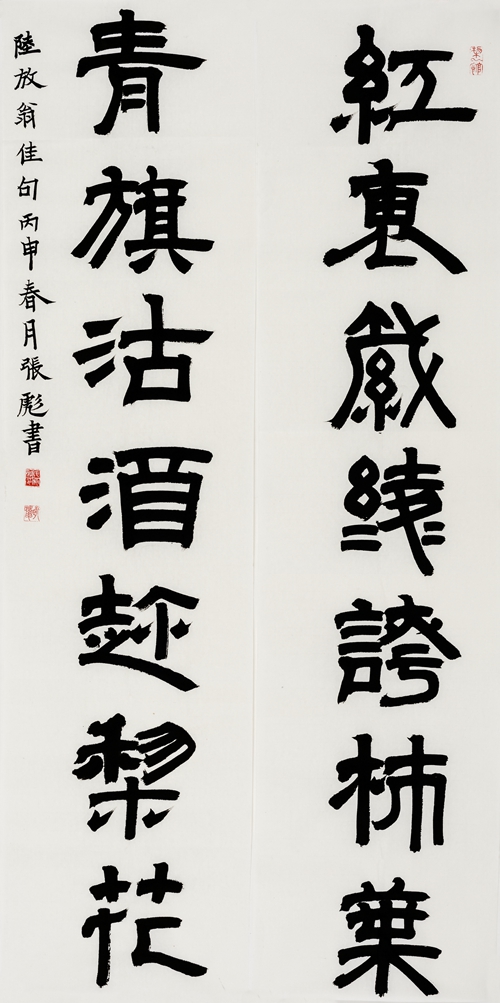 紅袖織綾誇柿葉
青旗沽酒趂棃花
陸放翁佳句丙申春月張彪書